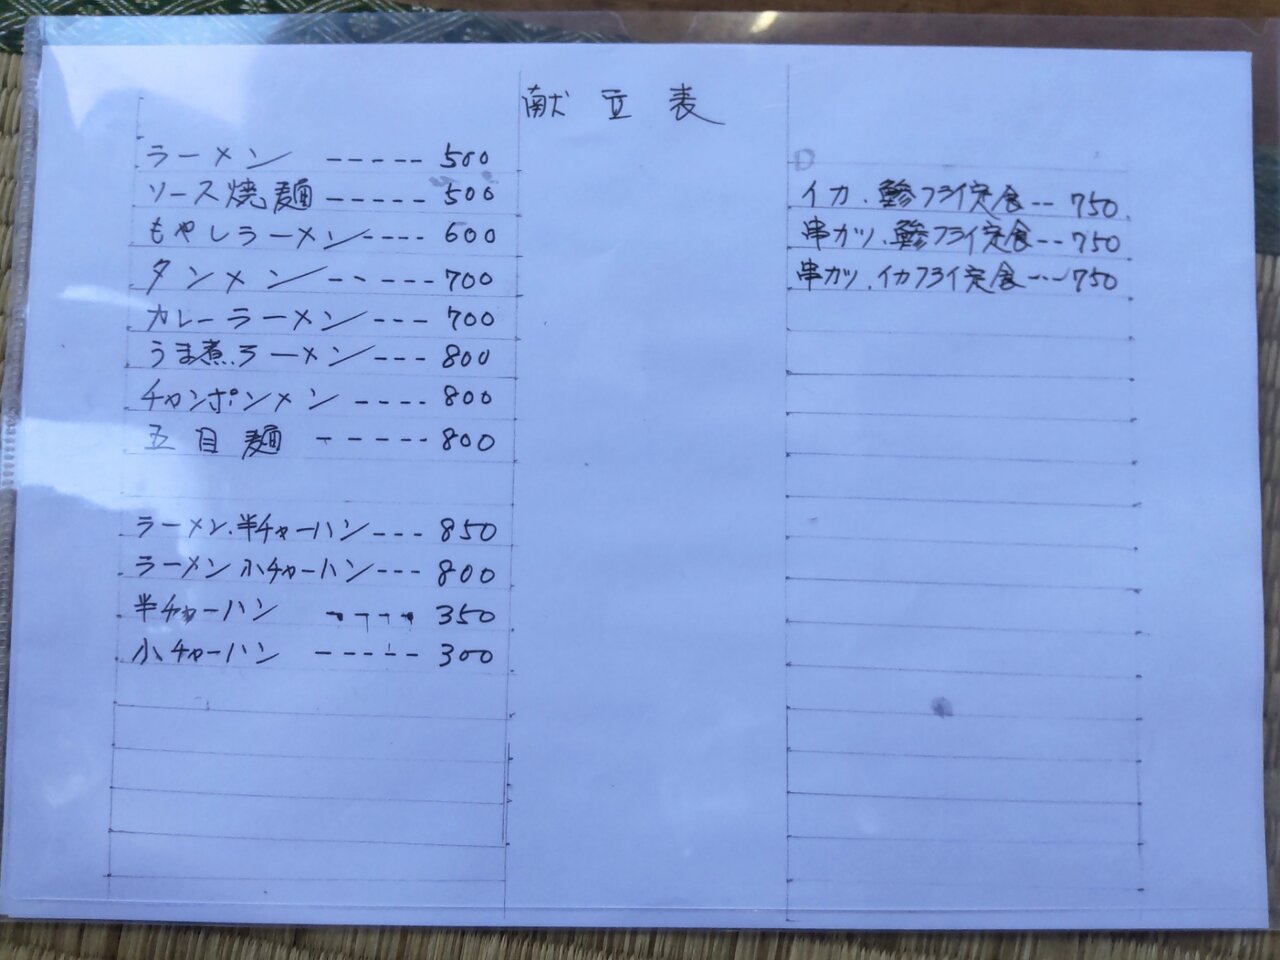 献立表
ラーメン ----- 500
ソース焼麺 ----- 500
もやしラーメン ---- 600
タンメン ----- 700
カレーラーメン --- 700
うま煮ラーメン --- 800
チャンポンメン ---- 800
五目麺 ----- 800
ラーメン、半チャーハン --- 850
ラーメン小チャーハン --- 800
半チャーハン ---- 350
小チャーハン ----- 300
イカ、鯵フライ定食 -- 750
串カツ、鯵フライ定食 -- 750
串カツ、イカフライ定食 --- 750